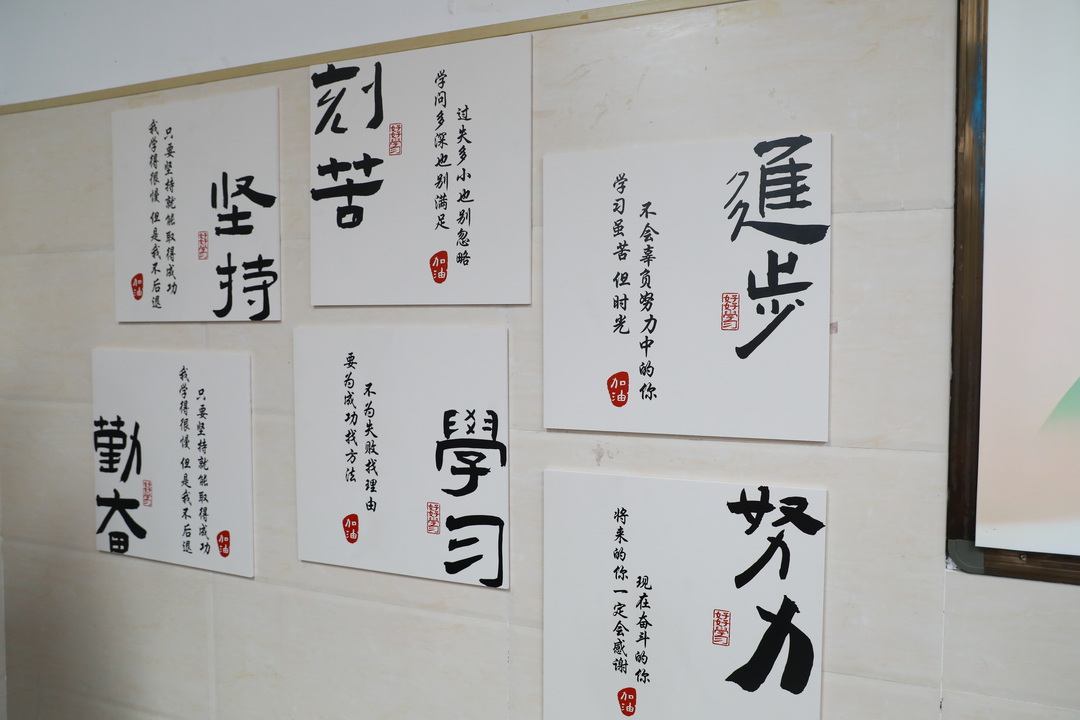 坚持
好好学习
只要坚持就能取得成功
我学得很慢 但是我不后退
加油
刻苦
好好学习
过失多小也别忽略
学问多深也别满足
加油
進步
好好学习
不会辜负努力中的你
学习虽苦 但时光
加油
勤奋
好好学习
只要坚持就能取得成功
我学得很慢 但是我不后退
加油
學习
好好学习
不为失败找理由
要为成功找方法
加油
努力
好好学习
现在奋斗的你
将来的你一定会感谢
加油